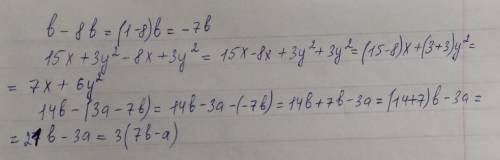 b - 8b = (1-8)b = -7b
15x + 3y² - 8x + 3y² = 15x - 8x + 3y² + 3y² = (15-8)x + (3+3)y² =
= 7x + 6y²
14b - (3a - 7b) = 14b - 3a - (-7b) = 14b + 7b - 3a = (14+7)b - 3a =
= 21b - 3a = 3(7b - a)